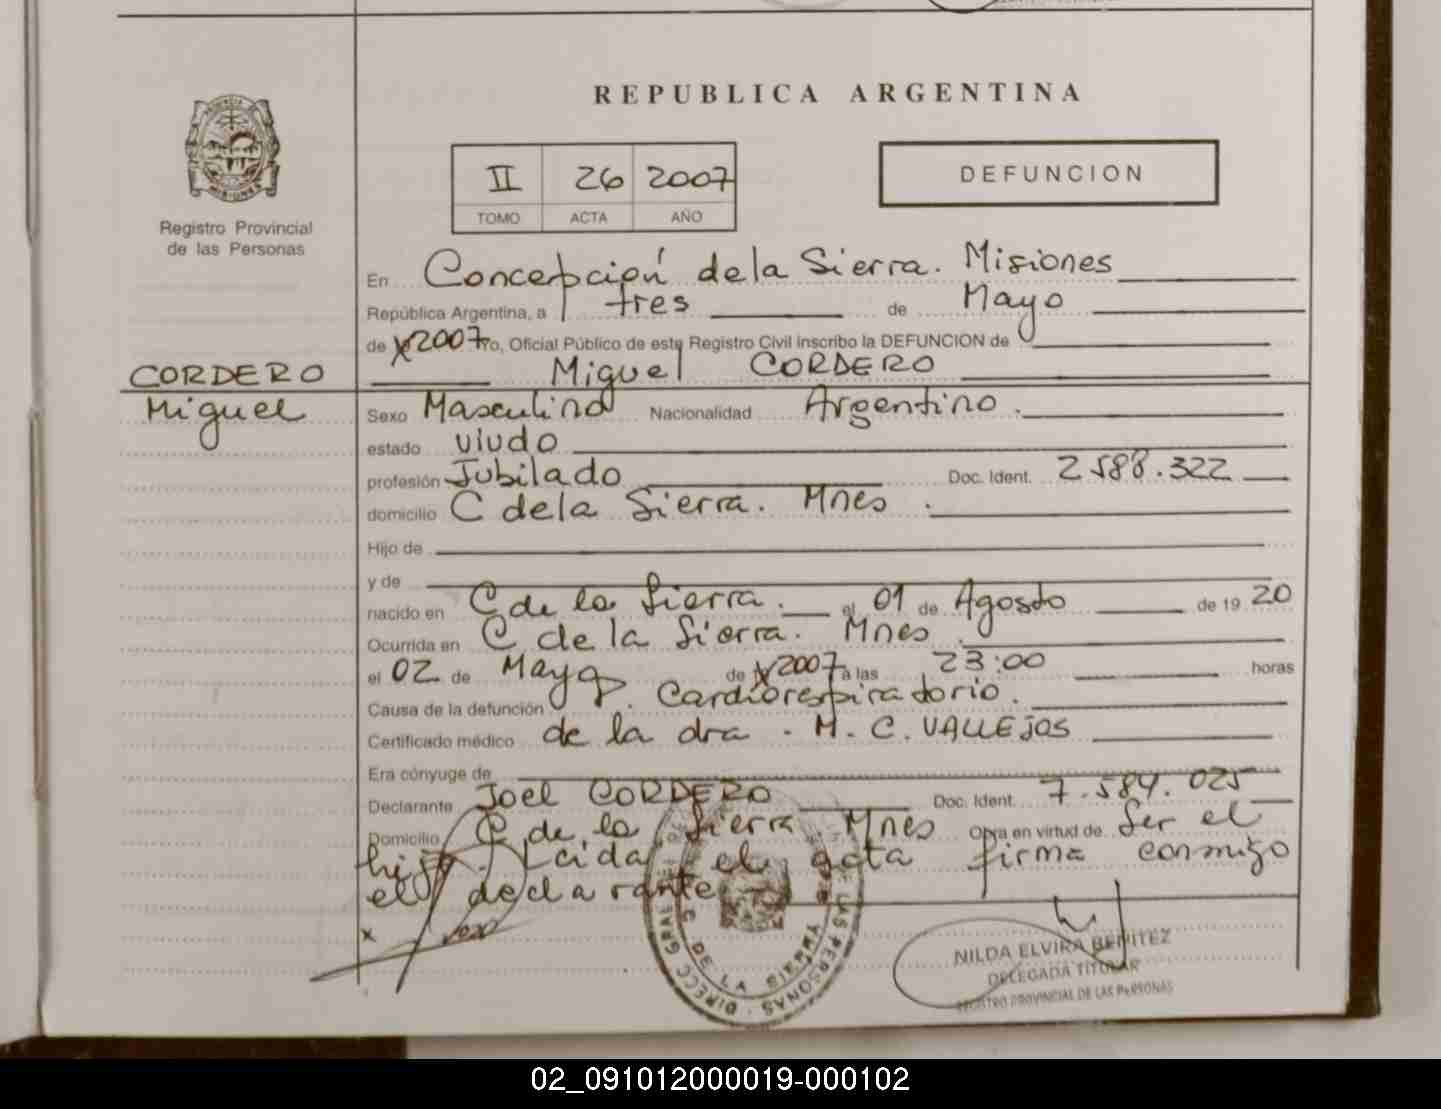 REPUBLICA ARGENTINA
II 26 2007
TOMO ACTA AÑO
DEFUNCION
Registro Provincial
de las Personas
CORDERO
Miguel
En Concepción de la Sierra. Misiones
República Argentina, a tres de Mayo
de 2007 Yo, Oficial Público de este Registro Civil inscribo la DEFUNCION de
Miguel CORDERO
Sexo Masculino Nacionalidad Argentino.
estado viudo
profesión Jubilado Doc. Ident. 2588.322
domicilio C de la Sierra. Mnes.
Hijo de
y de
nacido en C de la Sierra. el 01 de Agosto de 19 20
Ocurrida en C de la Sierra. Mnes.
el 02 de Mayo de 2007 a las 23:00 horas
Causa de la defunción P. Cardiorespiratorio.
Certificado médico de la dra. M. C. VALLEJOS
Era cónyuge de
Declarante Joel CORDERO Doc. Ident. 7.584.025
Domicilio C de la Sierra Mnes Obra en virtud de Ser el
hijo. Leida el acta firma conmigo
el declarante
x
NILDA ELVIRA BENITEZ
DELEGADA TITULAR
REGISTRO PROVINCIAL DE LAS PERSONAS
02_091012000019-000102